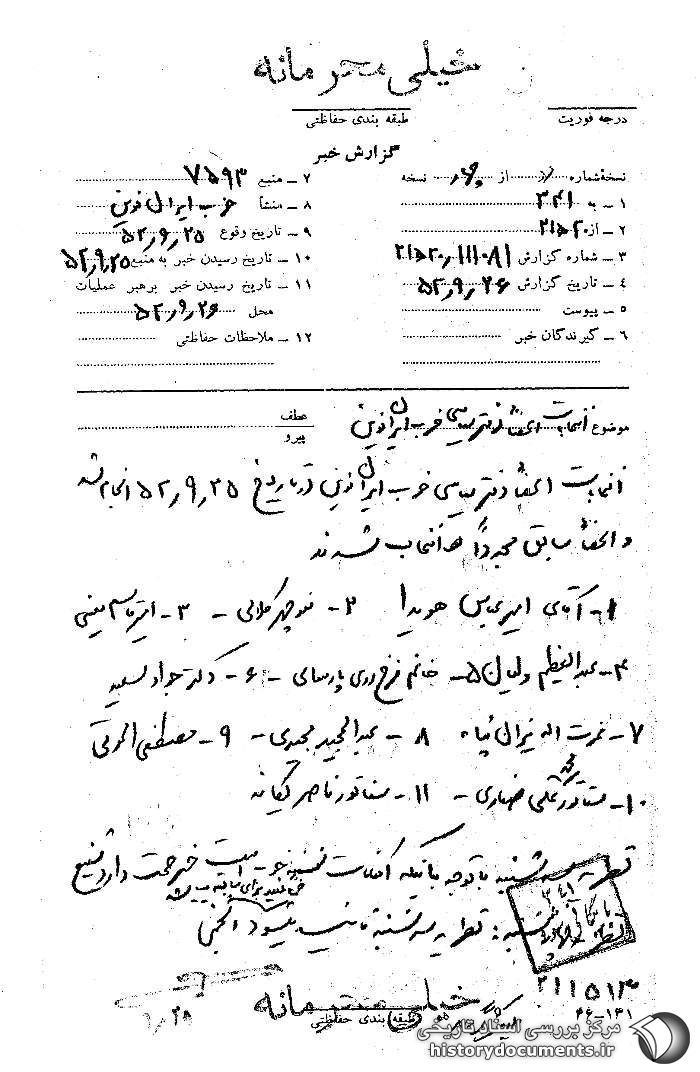 خیلی محرمانه
درجه فوریت
طبقه بندی حفاظتی
گزارش خبر
نسخه شماره از نسخه
۱ ـ به ۳۴۱
۲ ـ از ۲۱ه۲
۳ ـ شماره گزارش
۴ ـ تاریخ گزارش ۵۲٫۹٫۲۶
۵ ـ پیوست
۶ ـ گیرندگان خبر
۷ ـ منبع ۷۵۹۳
۸ ـ منشأ حزب ایران نوین
۹ ـ تاریخ وقوع ۵۲٫۹٫۲۵
۱۰ ـ تاریخ رسیدن خبر به منبع ۵۲٫۹٫۲۵
۱۱ ـ تاریخ رسیدن خبر برهبر عملیات
محل ۵۲٫۹٫۲۶
۱۲ ـ ملاحظات حفاظتی
موضوع انتخابات اعضاء دفتر سیاسی حزب ایران نوین
عطف
پیرو
انتخابات اعضاء دفتر سیاسی حزب ایران نوین در تاریخ ۵۲٫۹٫۲۵ انجام شد
و اعضاء سابق مجدداً انتخاب شدند
۱ـ آقای امیرعباس هویدا ۲ـ منوچهر کلالی ـ ۳ـ امیرقاسم معینی
۴ـ عبدالعظیم ولیان ۵ـ خانم فرخ روی پارسای ـ ۶ـ دکتر جواد سعید
۷ـ نصرت اله ۸ ـ عبدالمجید مجیدی ـ ۹ـ مصطفی الموتی
۱۰ـ سناتور محمد علی صفاری ـ ۱۱ـ سناتور ناصر یگانه
نظریه سه شنبه با توجه باینکه خبر صحت دارد شفیع
نظریه سه شنبه تائید میشود
بایگانی
۲۱۱۵۱۳
خیلی محرمانه
طبقه بندی حفاظتی
۴۶-۱۳۱
مرکز بررسی اسناد تاریخی
historydocuments.ir